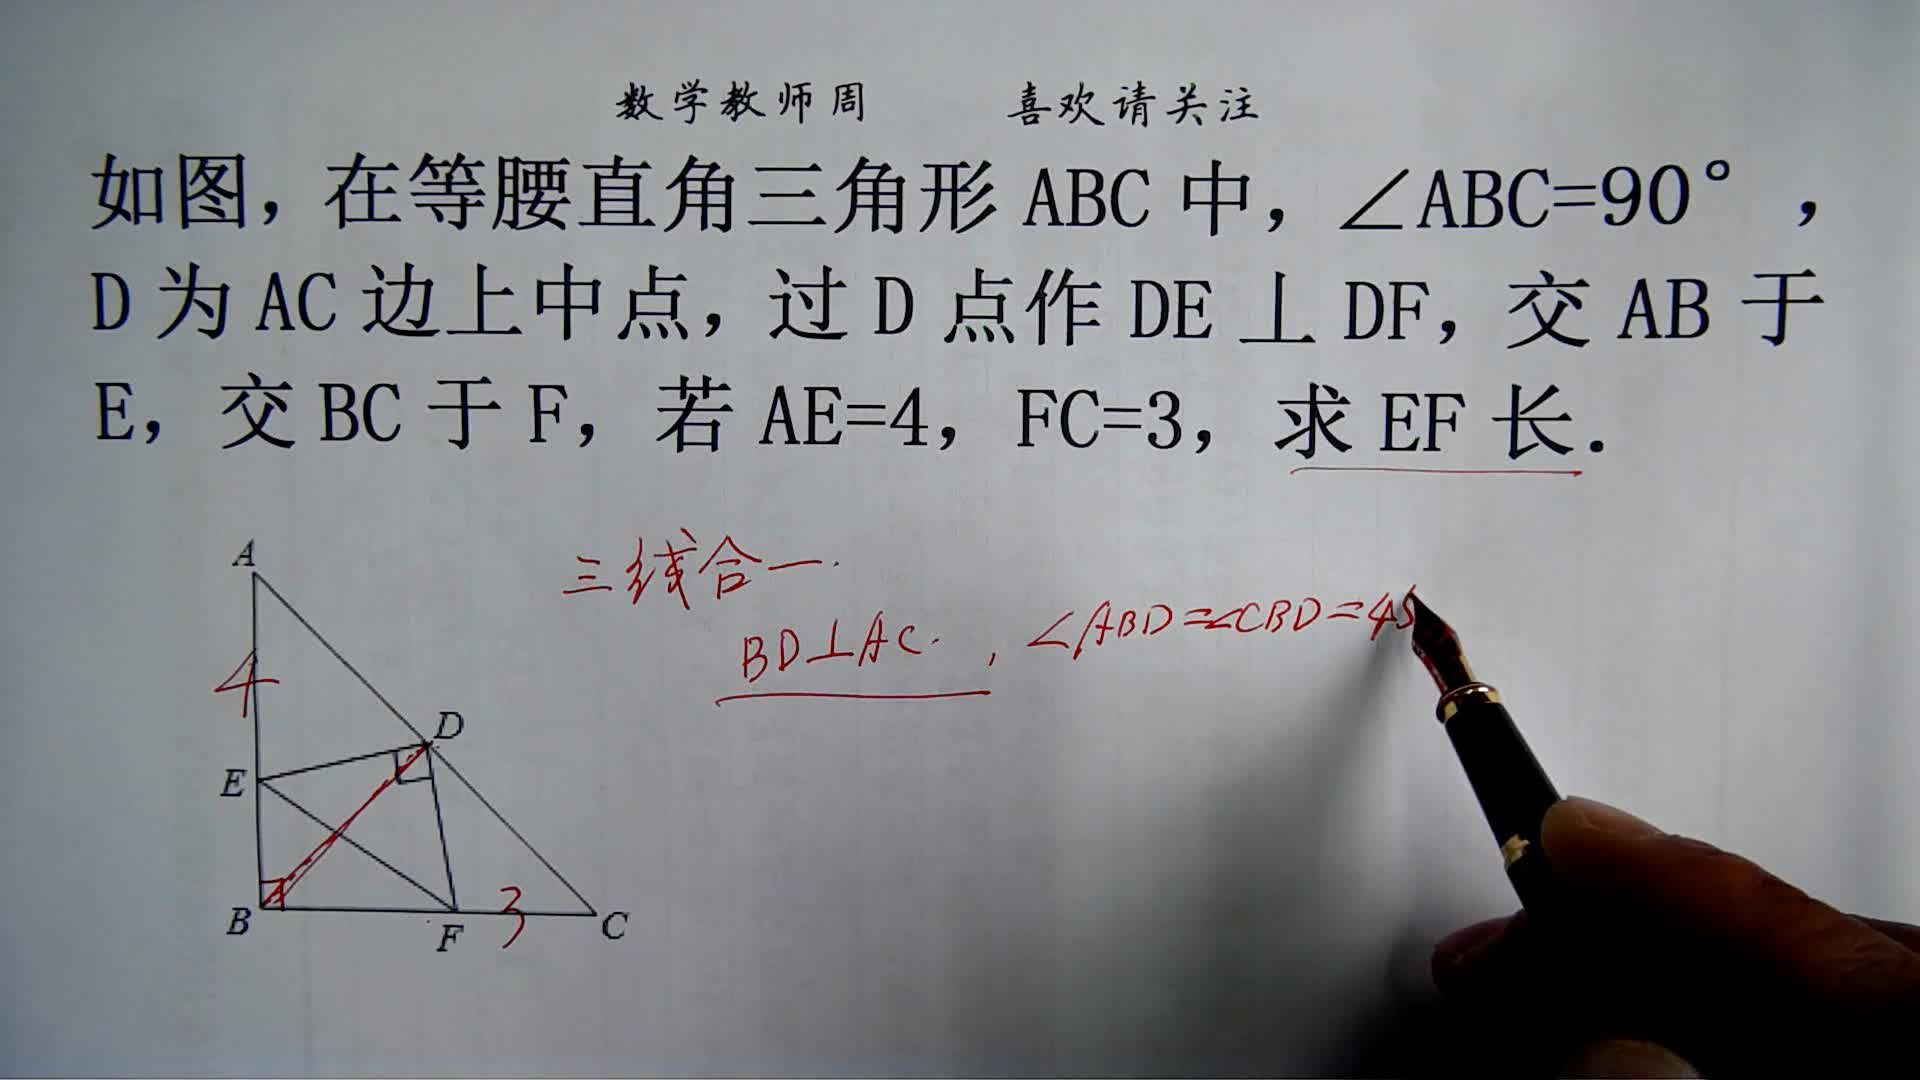 数学教师周 喜欢请关注
如图，在等腰直角三角形 ABC 中，∠ABC=90°，
D 为 AC 边上中点，过 D 点作 DE⊥DF，交 AB 于
E，交 BC 于 F，若 AE=4，FC=3，求 EF 长.
三线合一.
BD⊥AC.，∠ABD=∠CBD=45
A
4
D
E
B
F
3
C